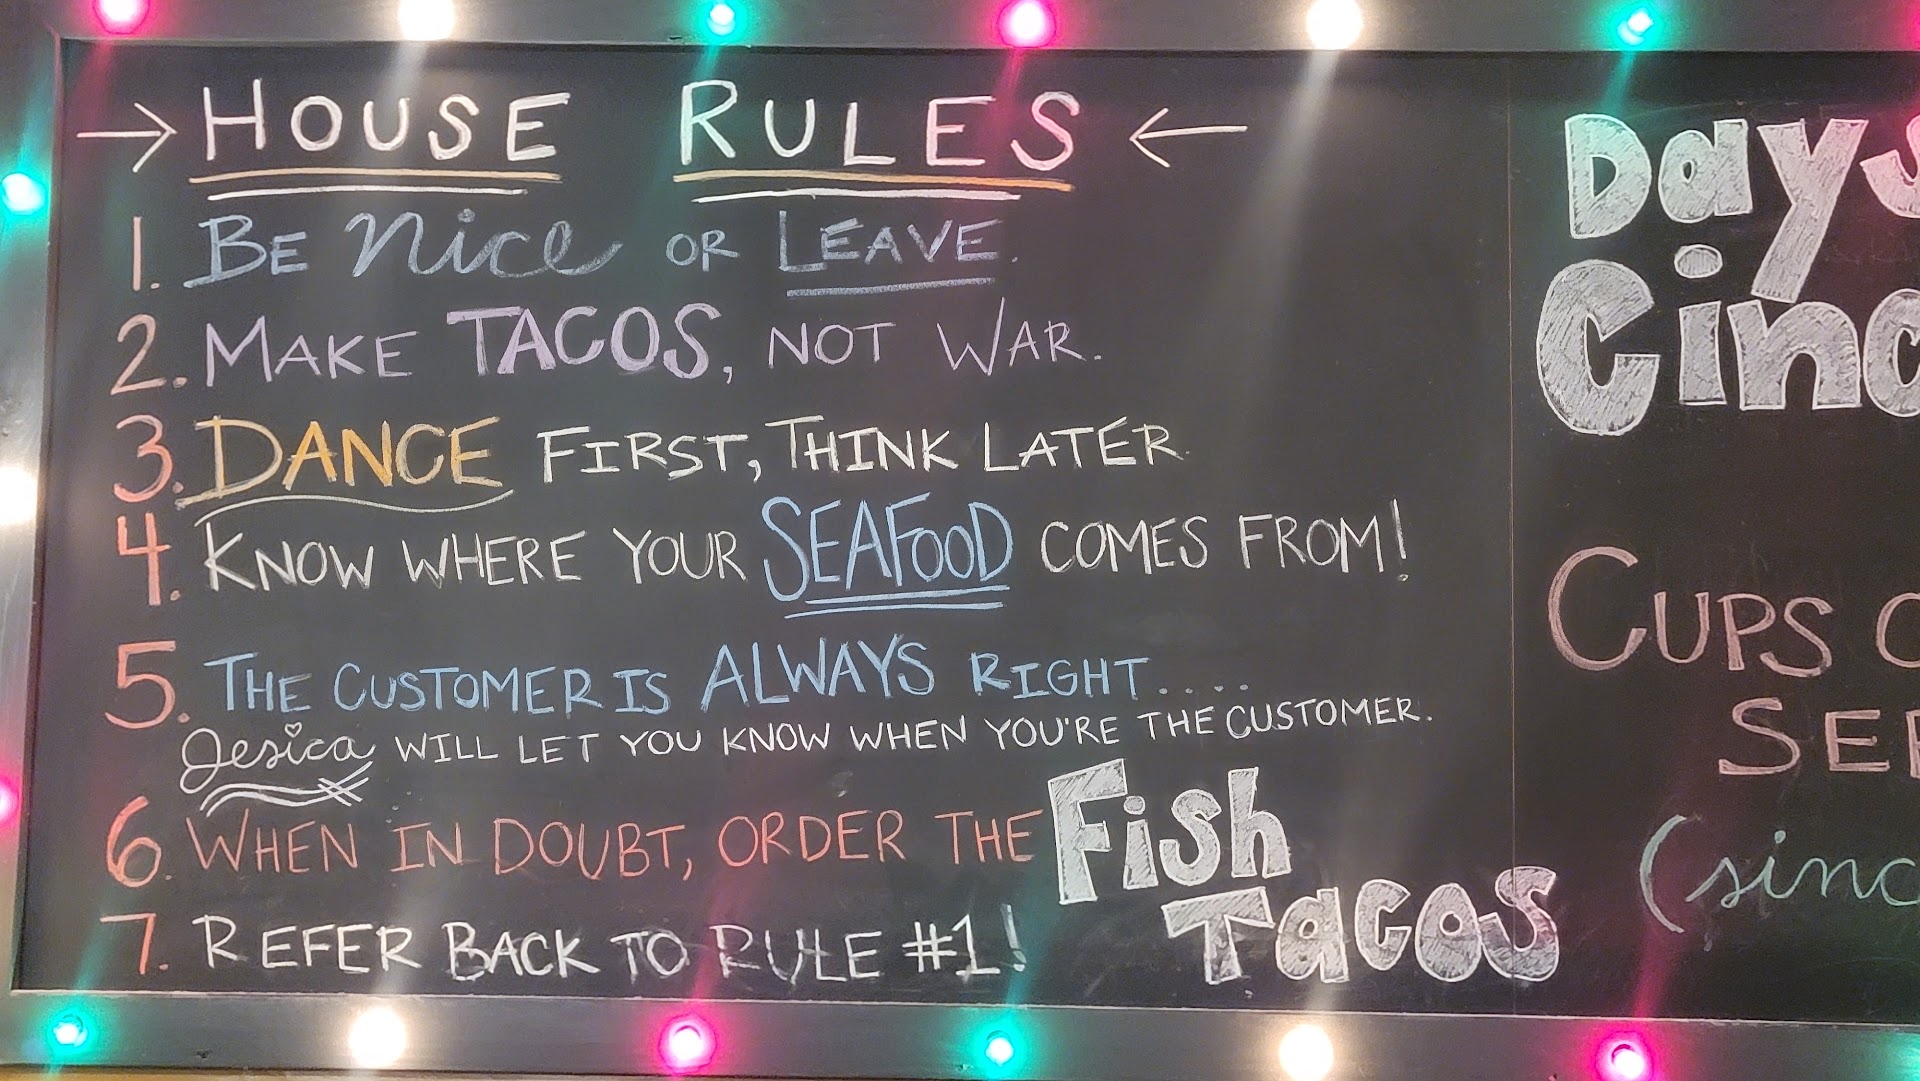 → HOUSE RULES ←
1. BE nice OR LEAVE.
2. MAKE TACOS, NOT WAR.
3. DANCE FIRST, THINK LATER
4. KNOW WHERE YOUR SEAFOOD COMES FROM!
5. THE CUSTOMER IS ALWAYS RIGHT....
Jesica WILL LET YOU KNOW WHEN YOU'RE THE CUSTOMER.
6. WHEN IN DOUBT, ORDER THE Fish
Tacos
7. REFER BACK TO RULE #1!
Days
CUPS